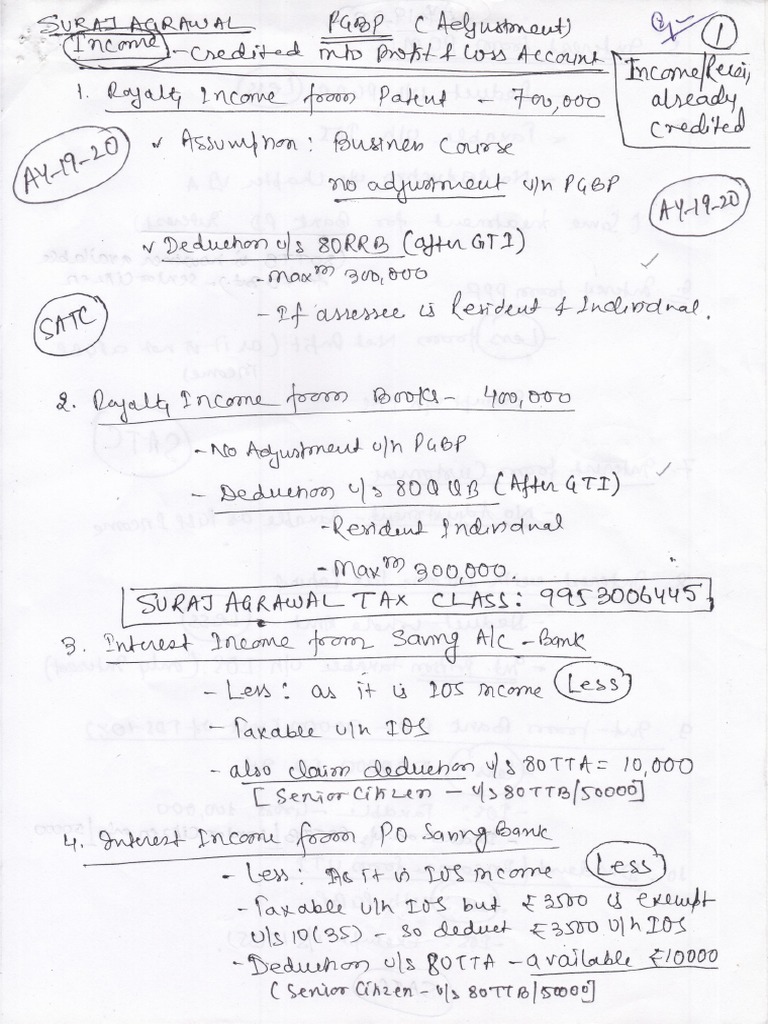 SURAJ AGRAWAL PGBP (Adjustment) 1
Income - Credited into Profit & Loss Account
Income/Receip already credited
1. Royalty Income from Patent - 400,000
AY-19-20
✓ Assumption: Business Course
no adjustment u/h PGBP
AY-19-20
✓ Deduction u/s 80RRB (after GTI)
- Maxm 300,000
- If assessee is Resident & Individual.
SATC
2. Royalty Income from Books - 400,000
- No Adjustment u/h PGBP
- Deduction u/s 80QQB (After GTI)
- Resident Individual
- Maxm 300,000.
SURAJ AGRAWAL TAX CLASS: 9953006445
3. Interest Income from Saving A/C - Bank
- Less: as it is IOS income Less
- Taxable u/h IOS
- also claim deduction u/s 80TTA = 10,000
[Senior Citizen - u/s 80TTB/50000]
4. Interest Income from PO Saving Bank
- Less: As it is IOS income Less
- Taxable u/h IOS but ₹3500 is exempt
u/s 10(35) - so deduct ₹3500 u/h IOS
- Deduction u/s 80TTA - available ₹10000
(Senior Citizen - u/s 80TTB/50000]